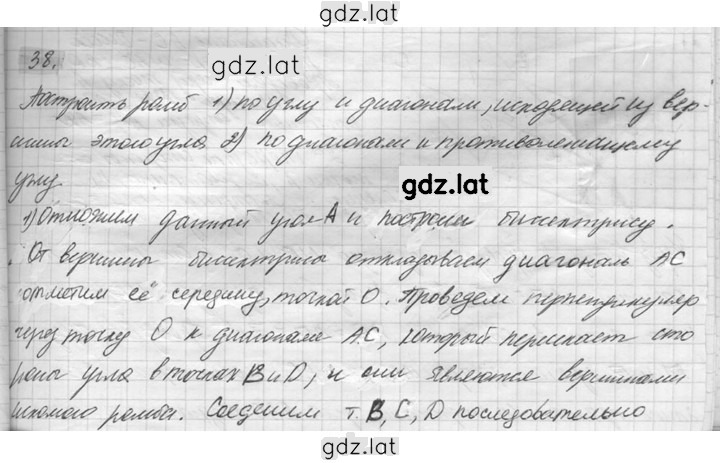 gdz.lat
38.
gdz.lat
Построить ромб 1) по углу и диагонали, исходящей из вер-
шины этого угла 2) по диагонали и противолежащему
углу
gdz.lat
1) Отложим данный угол A и построим биссектрису.
От вершины биссектрисы откладываем диагональ AC
отметим её середину, точкой O. Проведем перпендикуляр
через точку O к диагонали AC, который пересекает сто
роны угла в точках B и D, и они являются вершинами
искомого ромба. Соединим т. B, C, D последовательно
gdz.lat